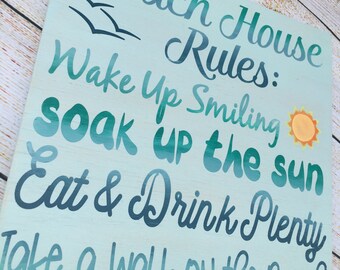 House
Rules:
Wake Up Smiling
soak up the sun
Eat & Drink Plenty
Take a Walk on the